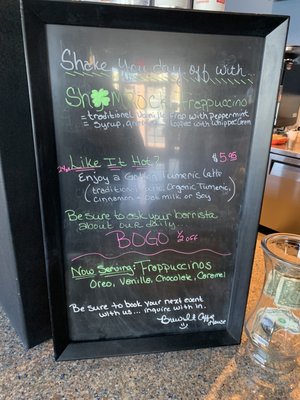 Shake your day off with
Sh MROCK Frappuccino
= traditional Vanilla Frap with Peppermint
= Syrup, and Topped with Whipped Cream
Like It Hot? $5.95
Enjoy a Golden Tumeric Latte
(traditional Latte, Organic Tumeric,
cinnamon + oat milk or Soy
Be sure to ask your barrista
about our daily...
BOGO 1/2 off
Now Serving: Frappuccinos
Oreo, Vanilla, Chocolate, Caramel
Be sure to book your next event
with us... inquire with in.
House